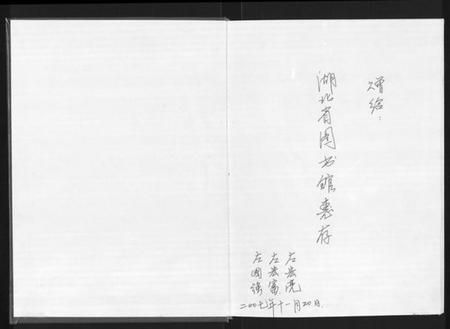 赠给：
湖北省图书馆惠存
左宏亮
左宏富
左国强
二00七年十一月20日